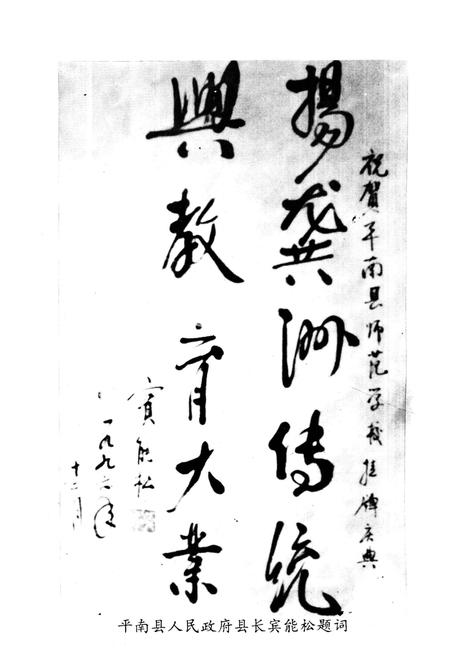 祝贺平南县师范学校挂牌庆典
揚龚洲传统
興教育大业
宾能松
一九九六年
十二月
平南县人民政府县长宾能松题词